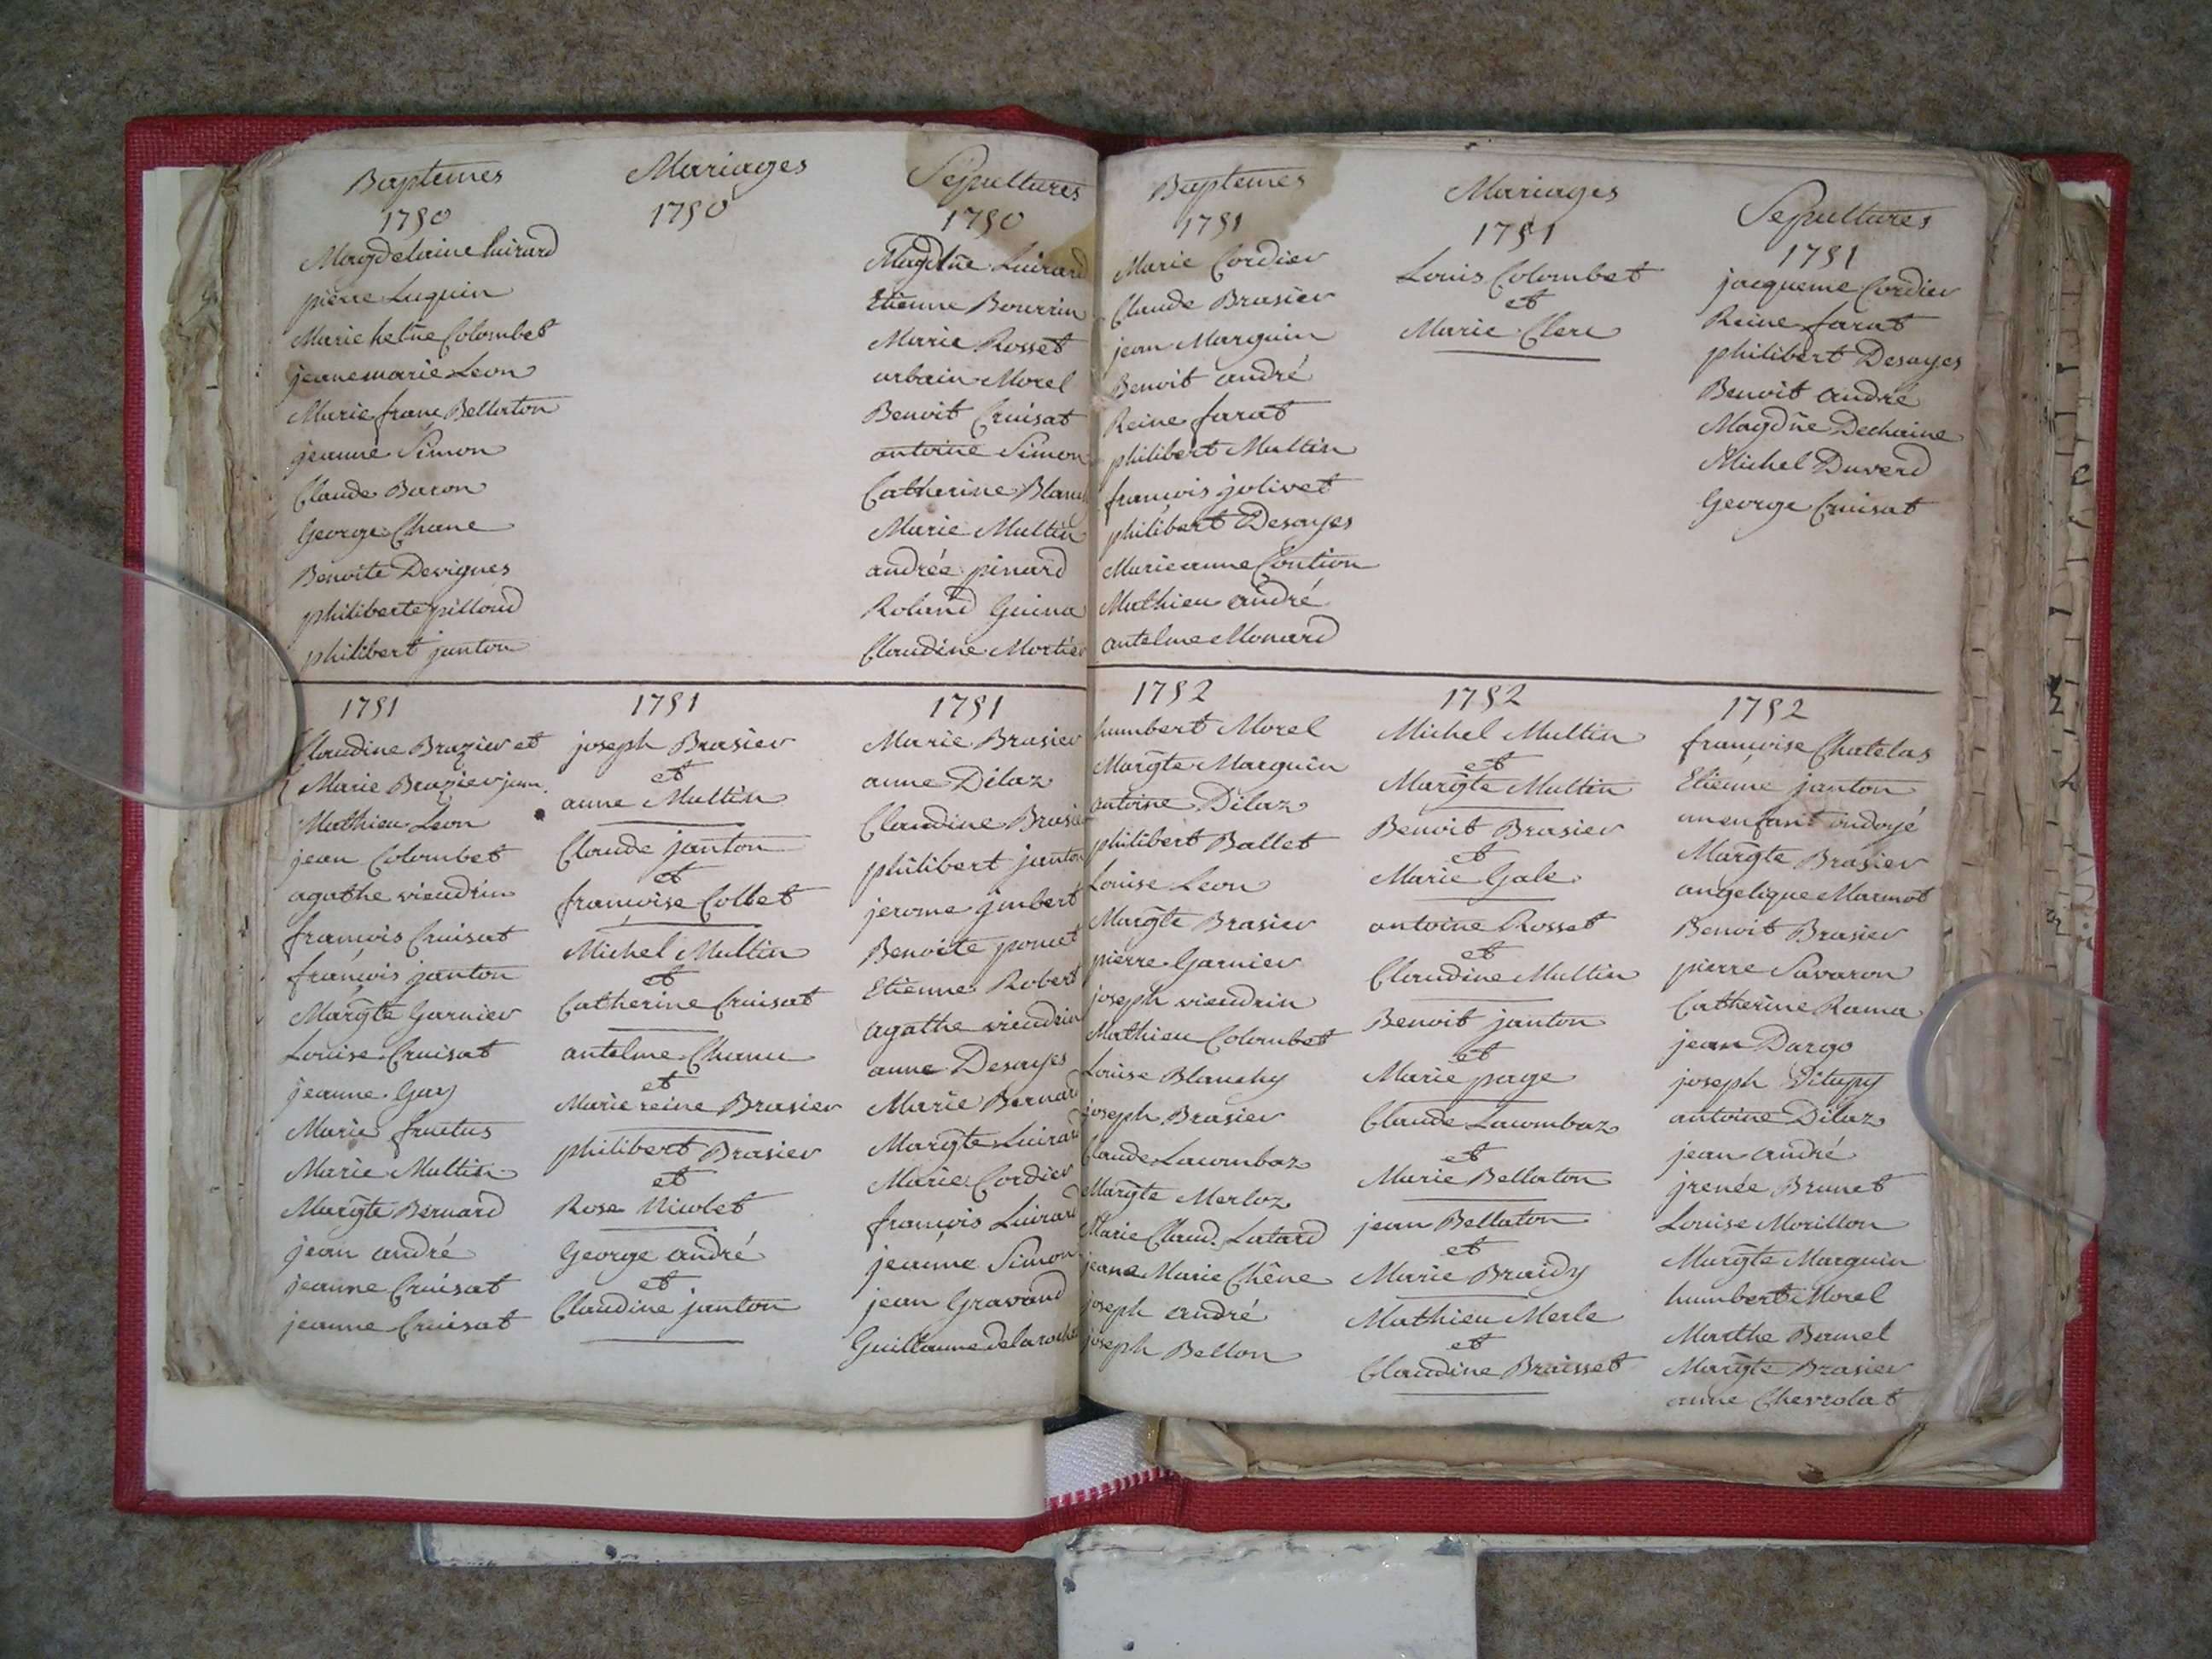 Baptemes
1750
Magdelaine Luirard
pierre Luquin
Marie hetñe Colombet
jeanemarie Leon
Marie franc Bellaton
jeanne Simon
Claude Baron
George Chane
Benoite Devignes
philiberte pilloud
philibert janton
Mariages
1750
Sepultures
1750
Magdñe Luirard
Etienne Bourrin
Marie Rosset
urbain Morel
Benoit Cruisat
antoine Simon
Catherine Blanc
Marie Multin
andrée pinard
Roland Guina
Claudine Mortier
1751
Claudine Brazier et
Marie Brazier jum.
Mathieu Leon
jean Colombet
agathe vieudrin
francois Cruisat
francois janton
Margte Garnier
Louise Cruisat
jeanne Guy
Marie fructus
Marie Multin
Margte Bernard
jean andré
jeanne Cruisat
jeanne Cruisat
1751
joseph Brasier
et
anne Multin
Claude janton
et
francoise Collet
Michel Multin
et
Catherine Cruisat
antelme Chanu
et
Marie reine Brasier
philibert Brasier
et
Rose Nicolet
George andré
et
Claudine janton
1751
Marie Brasier
anne Dilaz
Claudine Brasier
philibert janton
jerome jmbert
Benoite poncet
Etienne Robert
agathe vieudrin
anne Desayes
Marie Bernard
Margte Luirard
Marie Cordier
francois Luirard
jeanne Simon
jean Gravand
Guillaume delaroche
Baptemes
1751
Marie Cordier
Claude Brasier
jean Marguin
Benoit andré
Reine farat
philibert Multin
francois jolivet
philibert Desayes
Marieanne Contion
Mathieu andré
antelme Monard
Mariages
1751
Louis Colombet
et
Marie Clerc
Sepultures
1751
jacqueme Cordier
Reine farat
philibert Desayes
Benoit andré
Magdñe Dechaine
Michel Duverd
George Cruisat
1752
humbert Morel
Margte Marguin
antoine Dilaz
philibert Ballet
Louise Leon
Margte Brasier
pierre Garnier
joseph vieudrin
Mathieu Colombet
Louise Blanchy
joseph Brasier
Claude Lacombaz
Margte Merloz
Marie Claud. Latard
jeane Marie Chêne
joseph andré
joseph Bellon
1752
Michel Multin
et
Margte Multin
Benoit Brasier
et
Marie Gale
antoine Rosset
et
Claudine Multin
Benoit janton
et
Marie page
Claude Lacombaz
et
Marie Bellaton
jean Bellaton
et
Marie Braidy
Mathieu Merle
et
Claudine Braisset
1752
françoise Chatelas
Etienne janton
un enfant ondoyé
Margte Brasier
angelique Marmot
Benoit Brasier
pierre Savaron
Catherine Rama
jean Dargo
joseph Ditupy
antoine Dilaz
jean andré
jrenée Brunet
Louise Morillon
Margte Marguin
humbert Morel
Marthe Bernel
Margte Brasier
anne Chevrolat